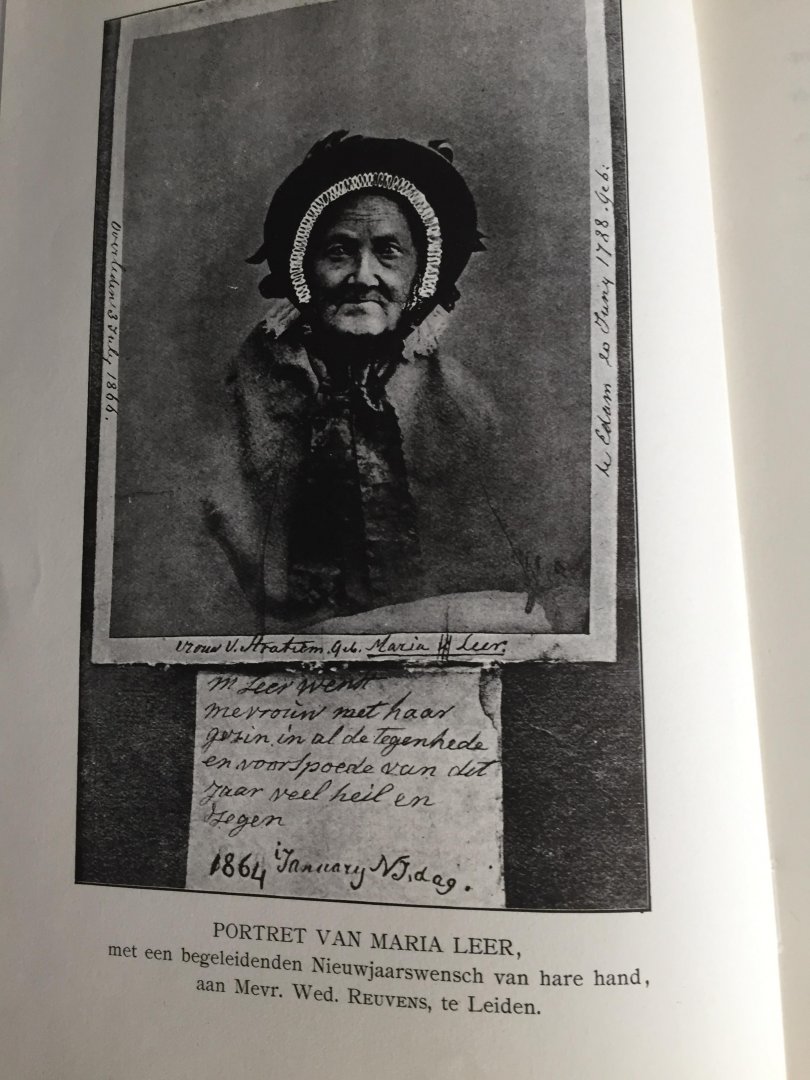 Overleden 3 July 1866.
te Edam 20 Juny 1788. Geb:
vrouw V. Stratum. geb. Maria Leer.
M Leer wenst
mevrouw met haar
gezin in al de tegenhede
en voorspoede van dit
jaar veel heil en
zegen
1864 i January NJ. dag.
PORTRET VAN MARIA LEER,
met een begeleidenden Nieuwjaarswensch van hare hand,
aan Mevr. Wed. REUVENS, te Leiden.